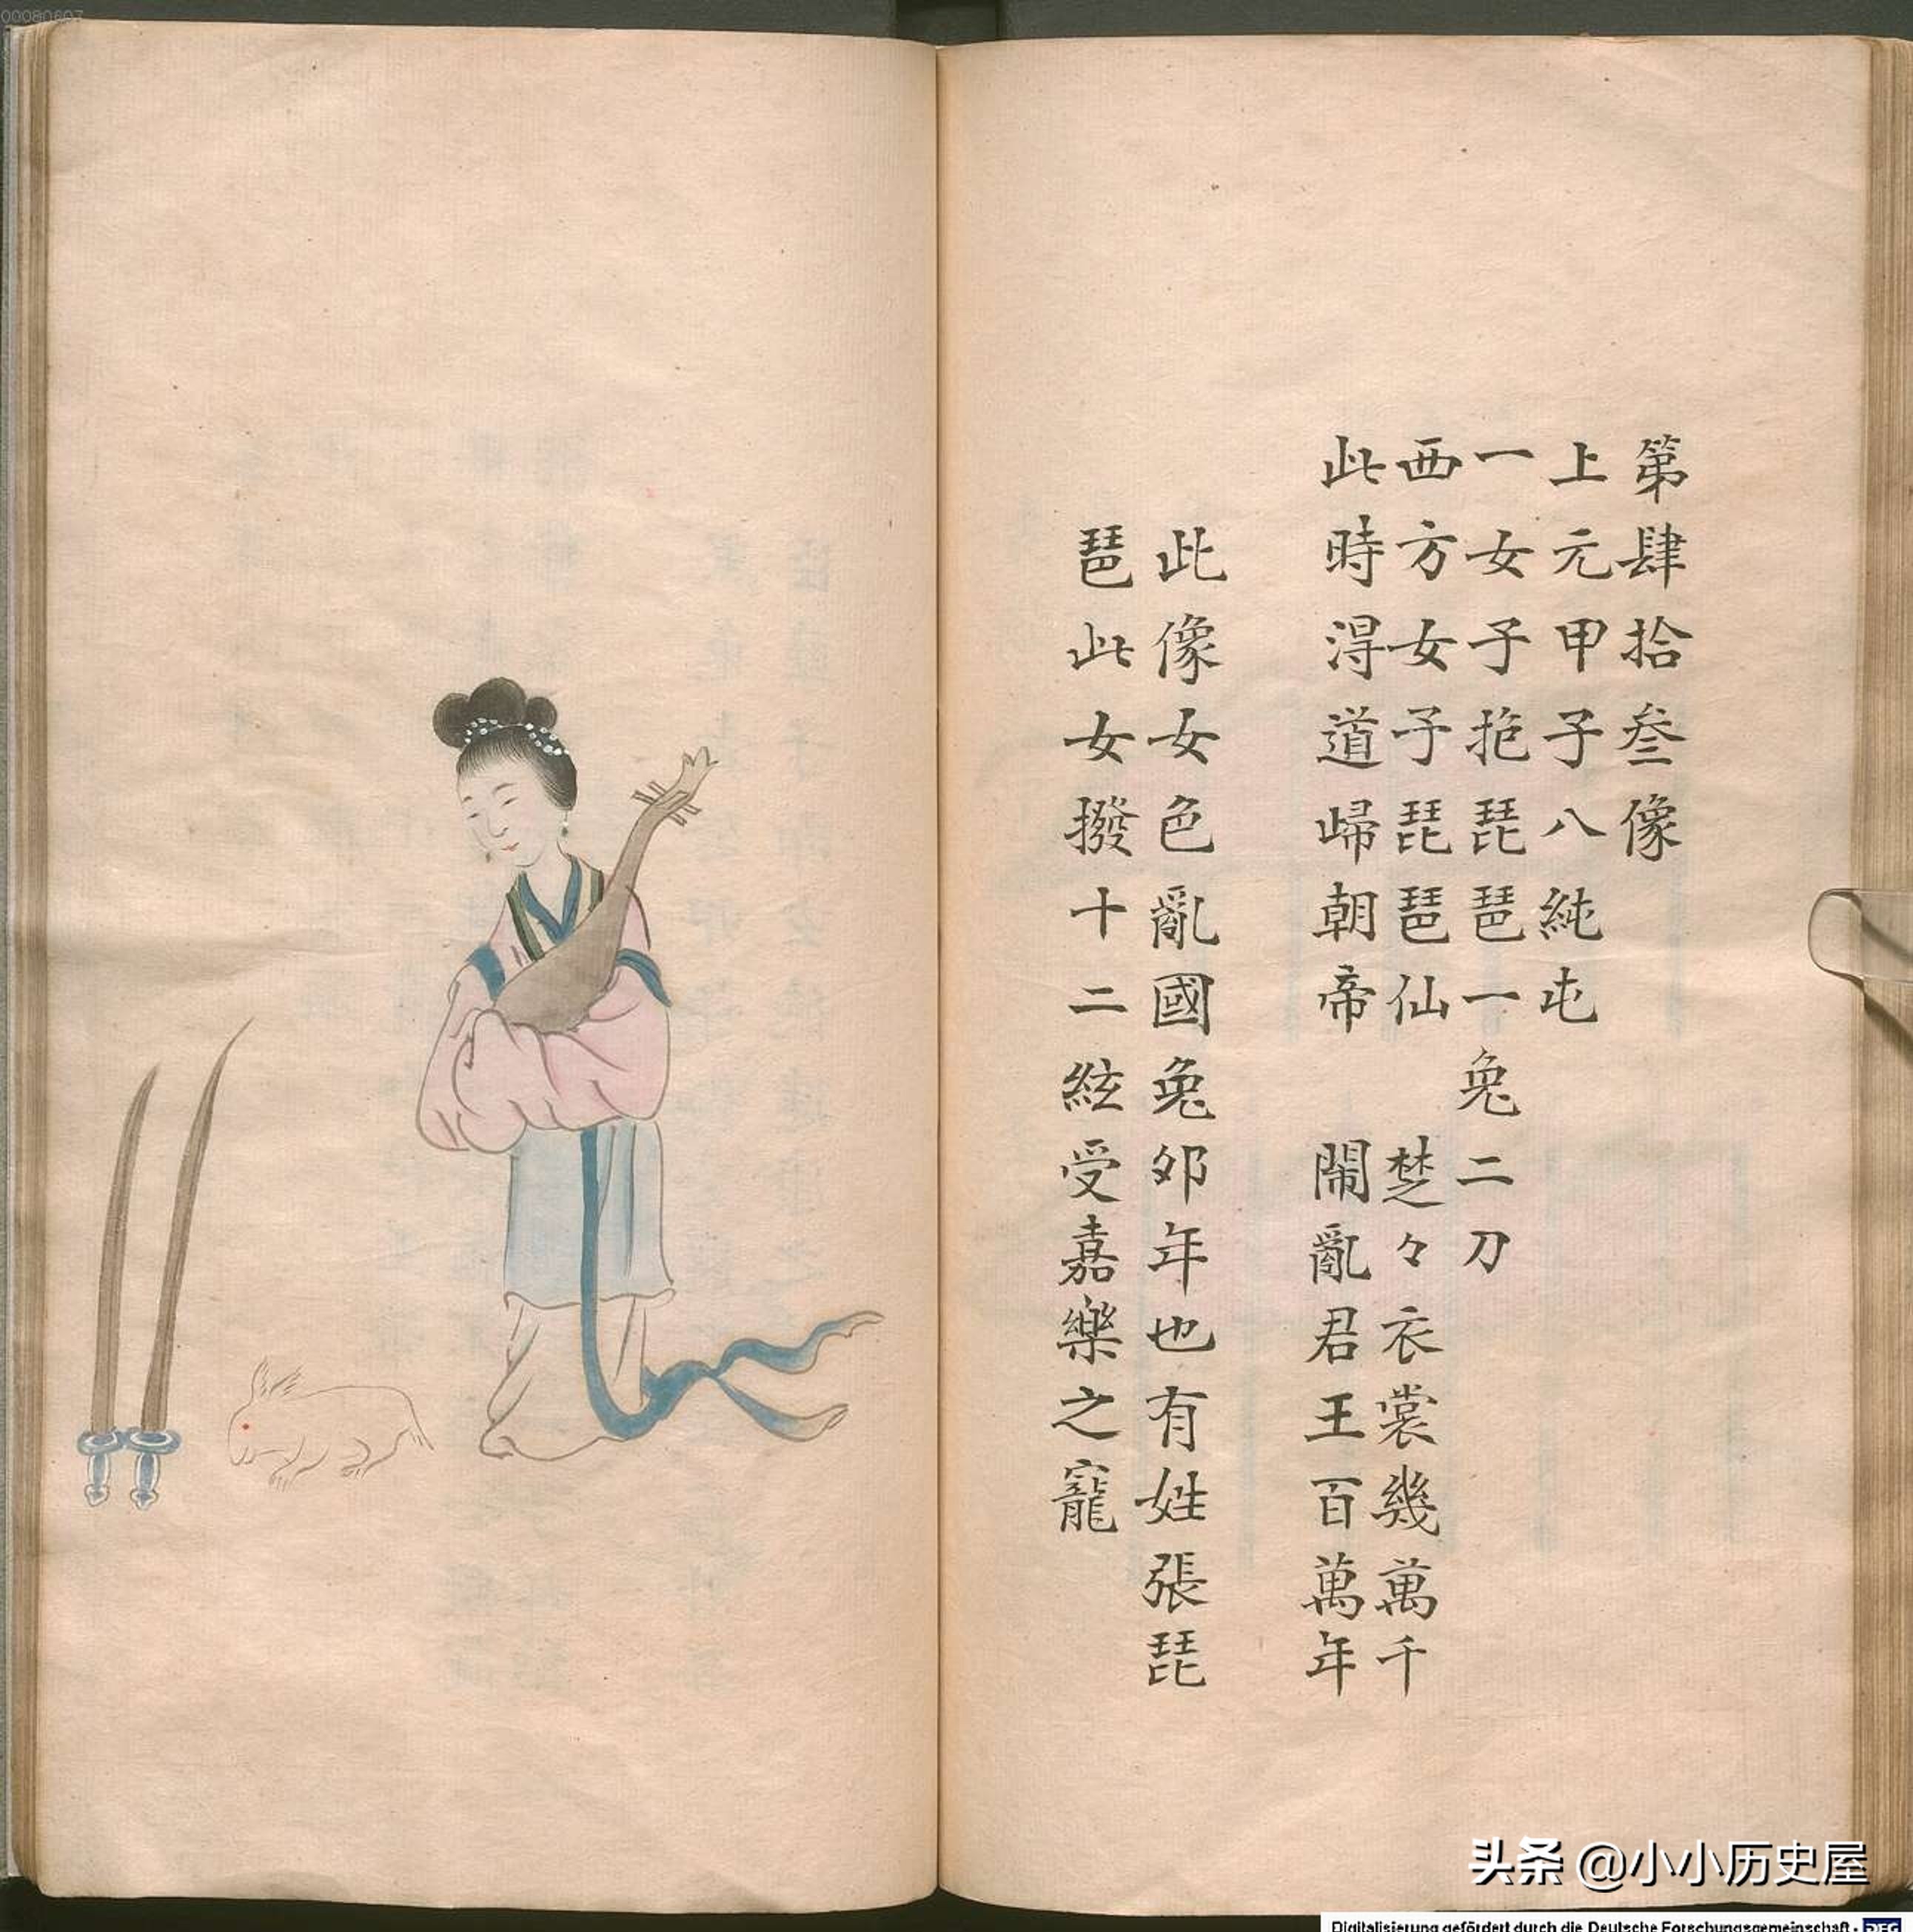 00080607
第肆拾叁像
上元甲子八純屯
一女子抱琵琶一兔二刀
西方女子琵琶仙　楚々衣裳幾萬千
此時淂道歸朝帝　鬧亂君王百萬年
此像女色亂國兔夘年也有姓張琵
琶此女撥十二絃受嘉樂之寵
头条 @小小历史屋
Digitalisierung gefördert durch die Deutsche Forschungsgemeinschaft - DFG